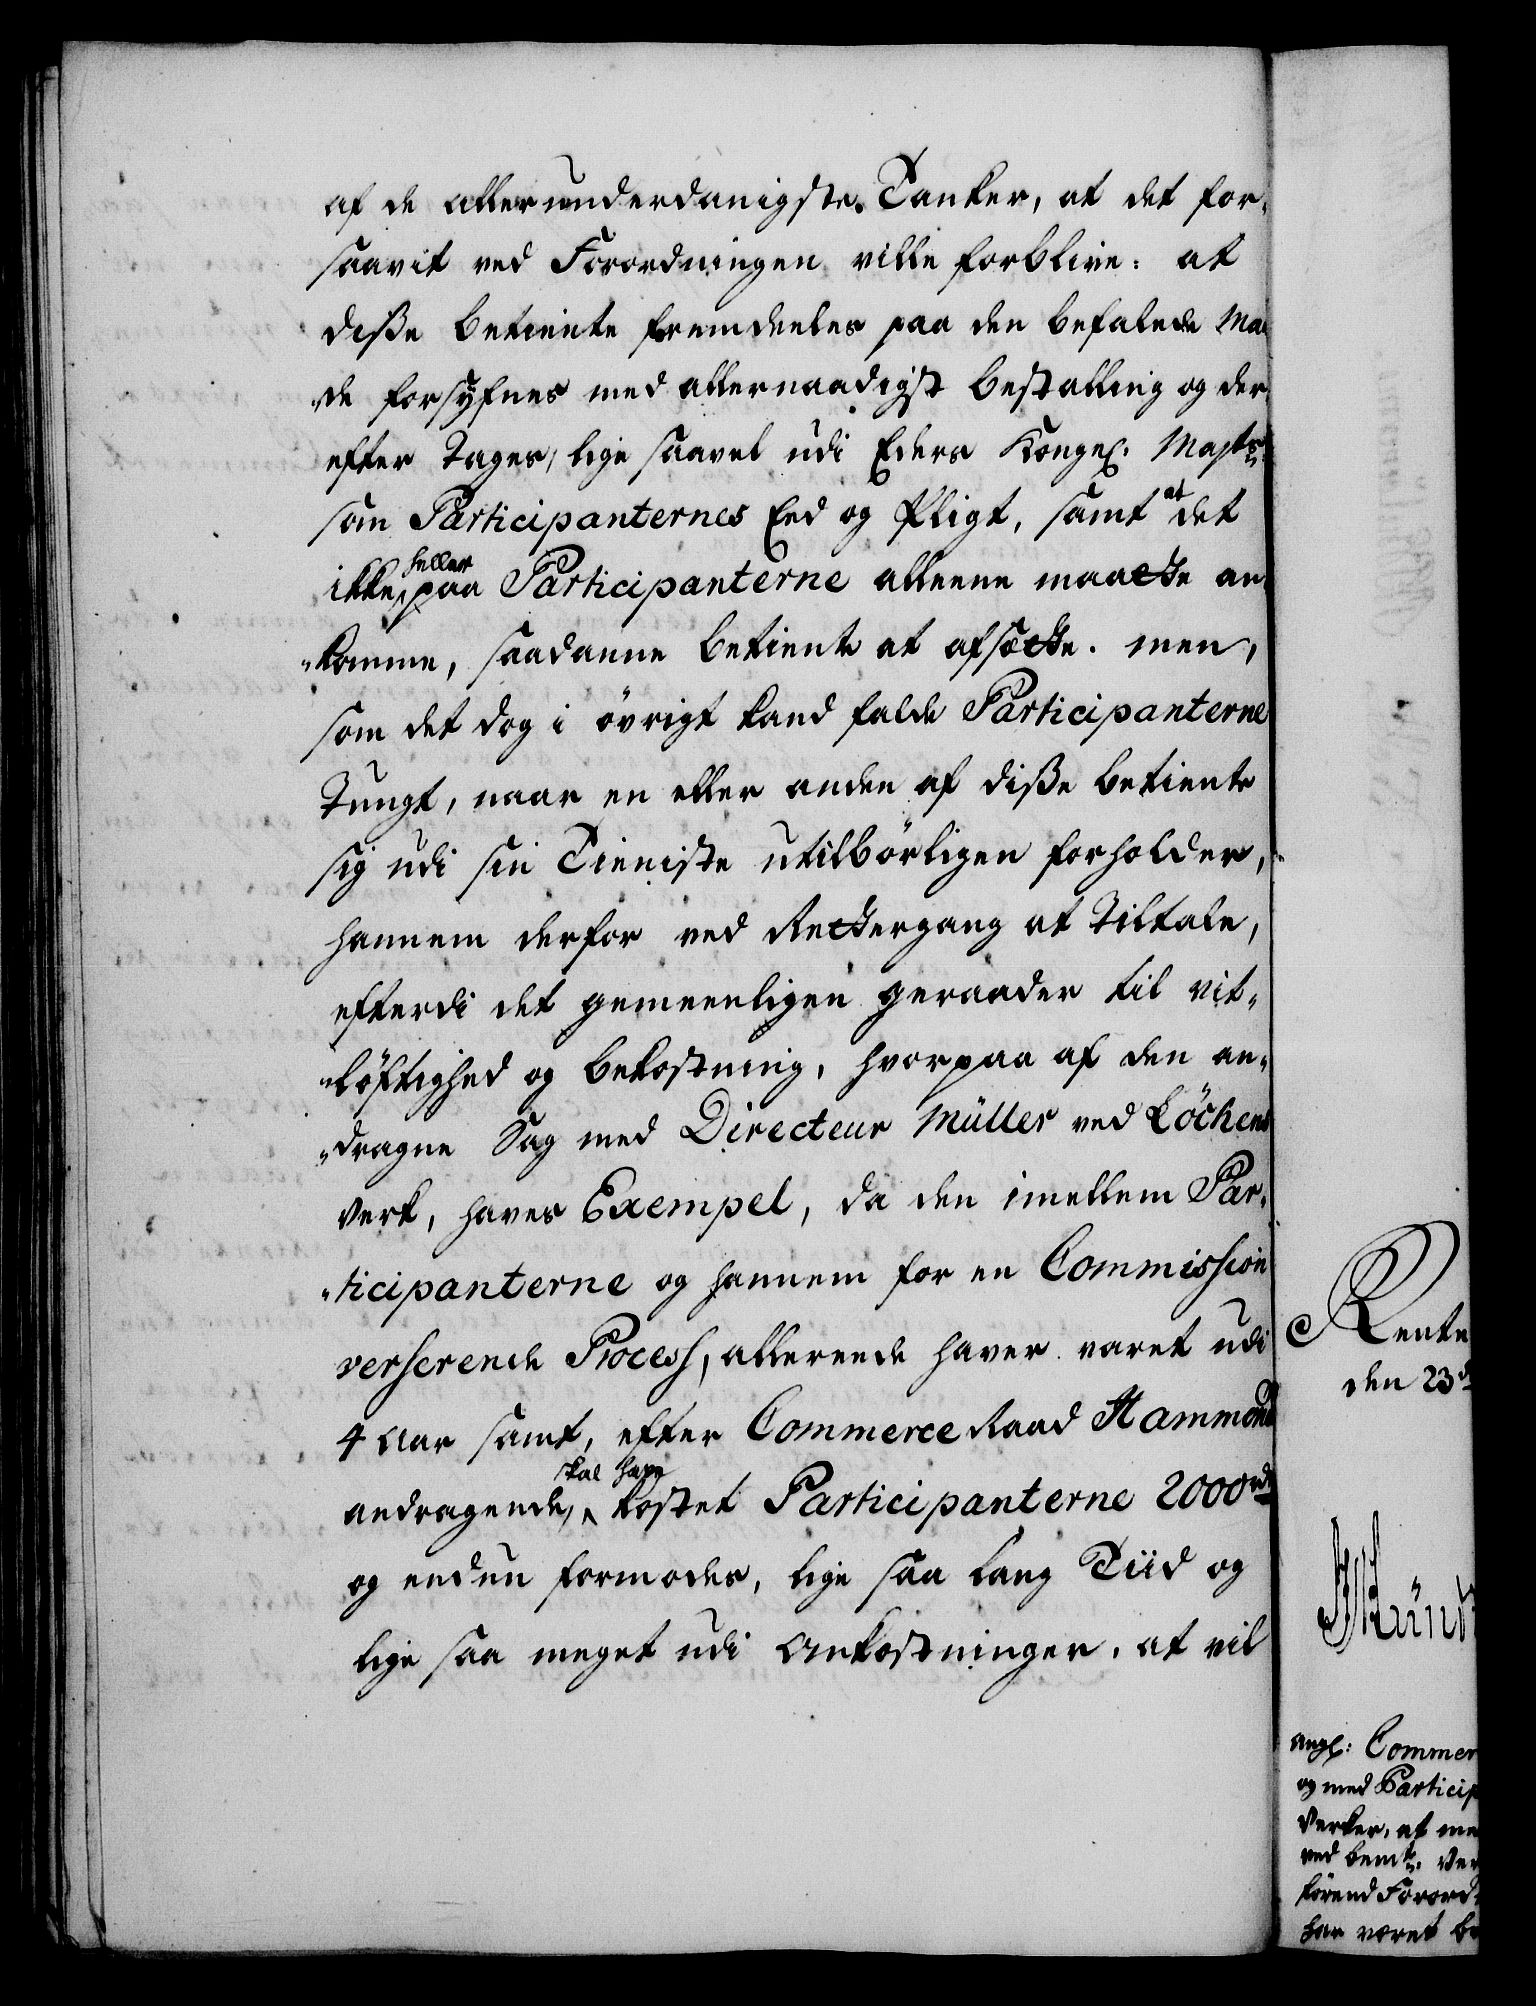 af de allerunderdanigste Tanker, at det for-
saavit ved Forordningen ville forblive: at
disse betiente fremdeeles paa den befalede Maa-
de forsyfnes med allernaadigst bestalling og der
efter tages, lige saavel udi Eders Kongel. Mayts
som Participanternes Eed og Pligt, samt at det
ikke heller paa Participanterne alleene maatte an-
komme, saadanne betiente at afsætte. men,
som det dog i övrigt kand falde Participanterne
tungt, naar en eller anden af disse betiente
sig udi sin Tieniste utilbörligen forholder,
hannem derfor ved Rettergang at tiltale,
efterdi det gemeenligen geraader til vit-
löftighed og bekostning, hvorpaa af den an-
dragne Sag med Directeur Müller ved Löchens
Verk, haves Exempel, da den imellem Par-
ticipanterne og hannem for en Commission
verserende Process, allereede haver varet udi
4 Aar samt, efter Commerce Raad Hammonds
andragende, skal have kostet Participanterne 2000 rd
og endnu formodes, lige saa lang Tiid og
lige saa meget udi Omkostninger, at vil
Rente
den 23d
angl: Commer
og med Particip
Verker, at me
ved bemte. Ver
förend Forord
har været be